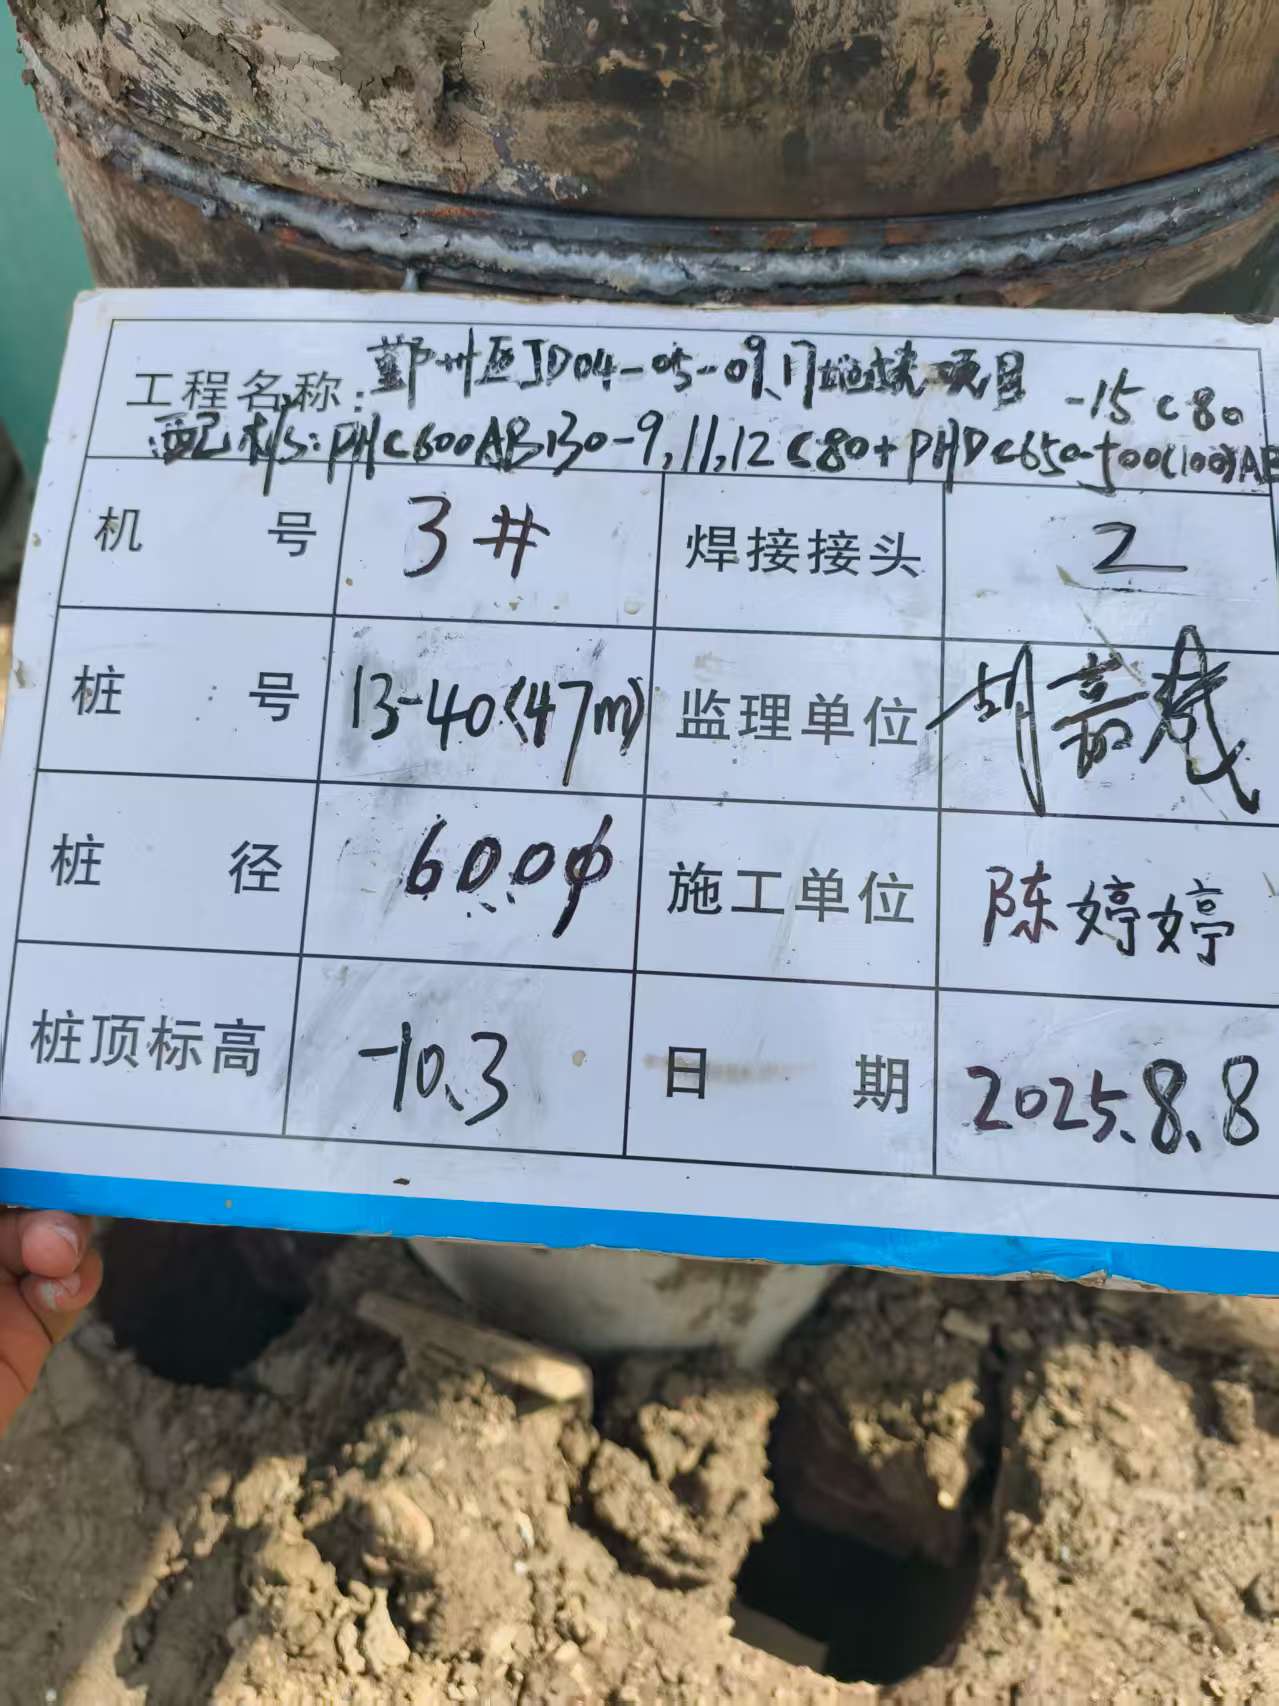 工程名称：鄞州区JD04-05-09、17地块项目
配桩：PHC600AB130-9,11,12 C80+PHDC650-500(100)AB
-15 C80
机号 3# 焊接接头 2
桩号 13-40(47m) 监理单位 胡嘉
桩径 600φ 施工单位 陈婷婷
桩顶标高 -10.3 日期 2025.8.8